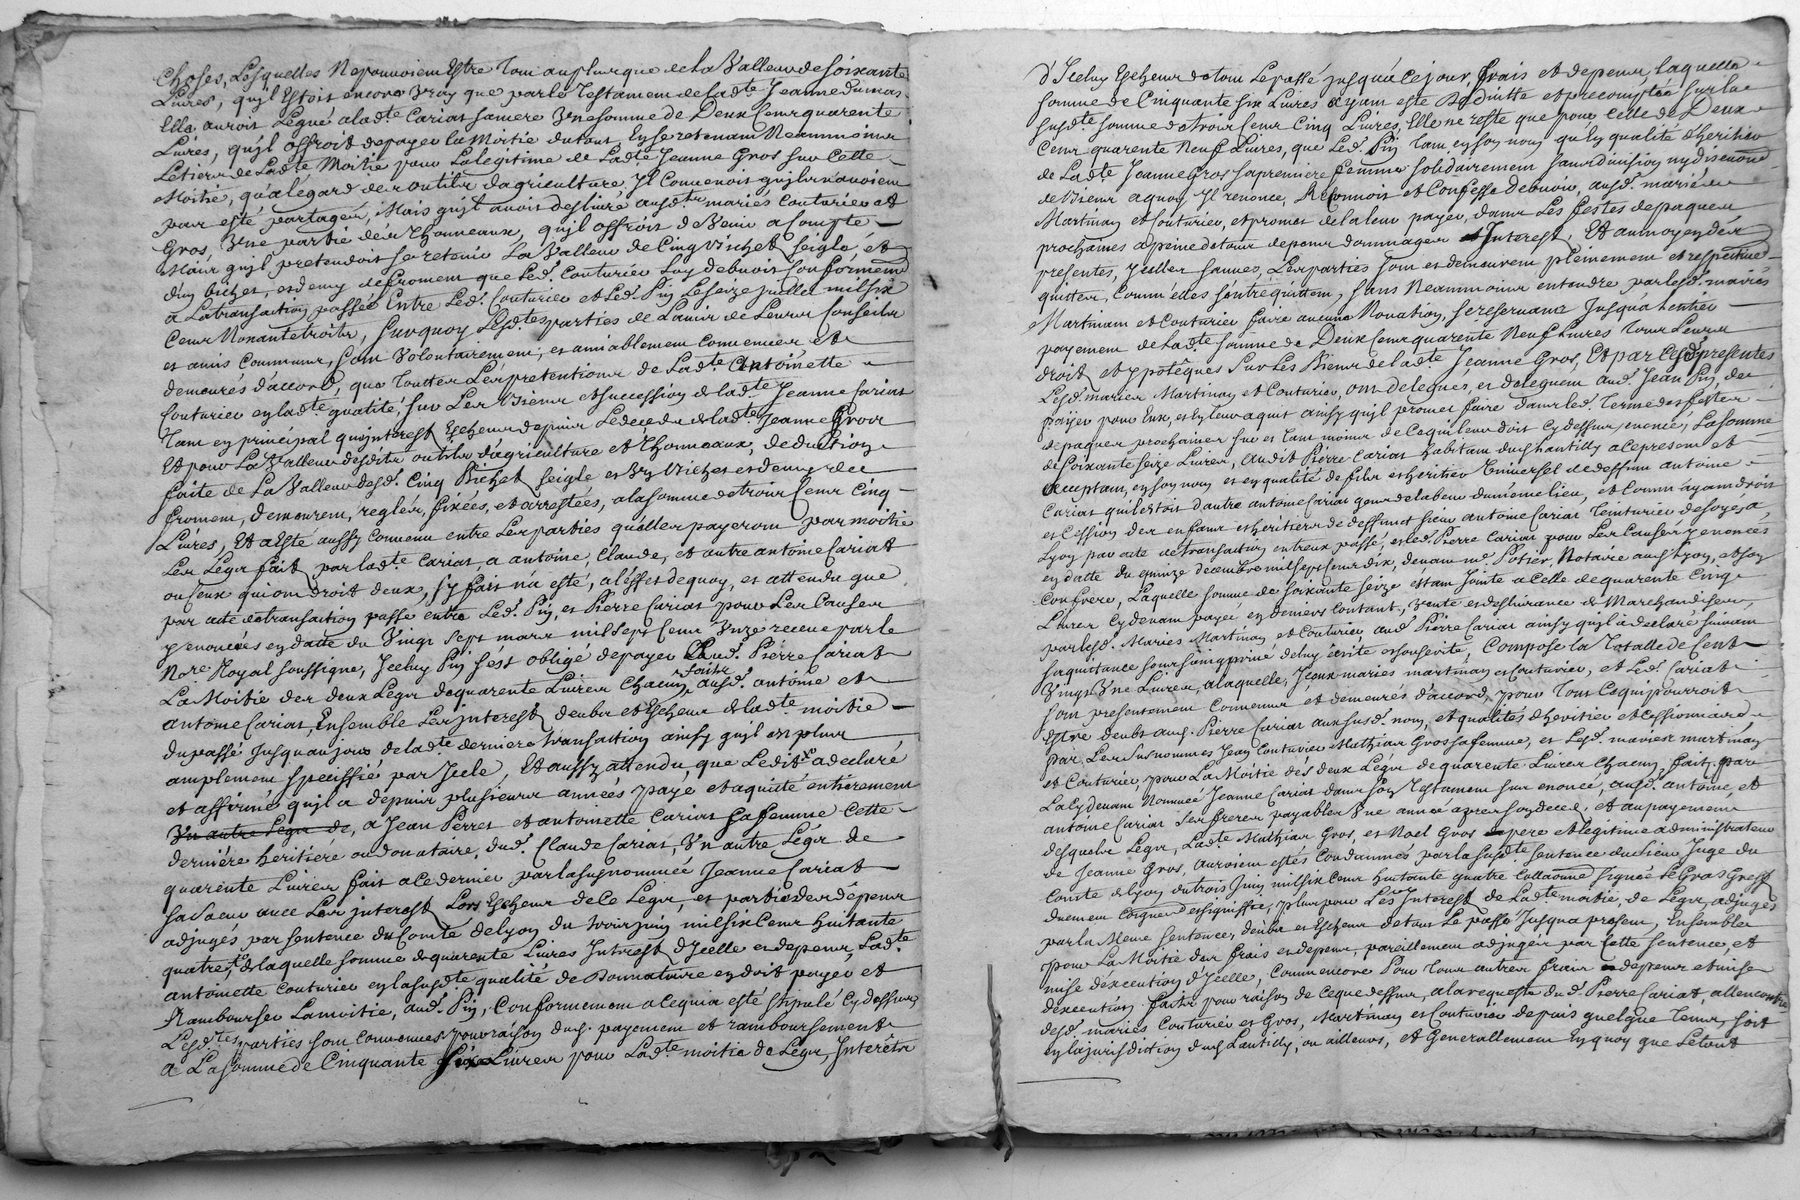 choses, Lesquelles Ne pouvoient Estre Tout au plus que de la Valleur de soixante
Livres, qu'jl Estoit encore Vray que par le Testament de lad.te Jeanne dumas
Elle auroit Legué a lad.te Cariat sa mere Vne somme de Deux Cent quarente
Livres, qu'jl offroit de payer la Moitié du tout, En se retenant Neammoins
Le tiers de Lad.te Moitié pour La legitime de Lad.te Jeanne Gros sur Cette
Moitié, qu'a l'egard des outils d'agriculture, Jl Convenoit qu'jls n'avoient
pas esté partagés, Mais qu'jl avoit deslivré ausd.ts mariés Couturier et
Gros, Vne partie des Thonneaux, qu'jl offroit de Venir a Compte
Mais qu'jl pretendoit se retenir La Valleur de Cinq bichets seigle et
d'un bichet, et demy de froment que Led. Couturier Luy debvoit Conformement
a La transaction passée Entre Led. Couturier et Led. Pin Le seize juillet mil six
Cent Nonante trois, Surquoy Lesd.tes parties de L'avis de Leurs Conseils
et amis Communs, sont Volontairement, et amiablement Convenües et
demeurés d'accord, que Touttes Les pretentions de Lad.te Antoinette
Couturier en lad.te qualité, sur Les Biens et succession de lad.te Jeanne Cariat
Tant en principal qu'interest Escheus depuis Le deced de lad.te Jeanne Gros
Et pour La Valleur desdits outils d'agriculture et Thonneaux, deduction
faite de La Valleur desd. Cinq Bichets seigle et Un Bichet et demy de
froment, demeurent, reglés, fixées, et arrestées, a la somme de trois Cent Cinq
Livres, Et a Esté aussy Convenu entre Les parties qu'elles payeront par moitié
Les Legs faits par lad.te Cariat, a antoine, Claude, et autre antoine Cariat
ou Ceux qui ont droit d'eux, s'y fait n'a esté, a l'effet de quoy, et attendu que
par acte de transaction passé entre Led. Pin, et Pierre Cariat pour Les Causes
y enoncées en datte du Vingt sept mars mil sept Cent Vnze receue par le
No.re Royal soussigné, Jceluy Pin s'est obligé de payer Aud. Pierre Cariat
La Moitié des deux Legs de quarente Livres Chacun faits ausd. antoine et
antoine Cariat, Ensemble Les jnterests deubs et Escheus de lad.te moitié
du passé Jusqu'au jour de lad.te derniere transaction ainsy qu'jl est plus
amplement speciffié par Jcele, Et aussy attendu, que Ledit a declaré
et affirmé qu'jl a depuis plusieurs années payé et aquité entierement
Vn autre Legs de, a Jean Perret et antoinette Cariat sa femme Cette
derniére heritiére ou donataire, dud. Claude Cariat, Vn autre Legs de
quarente Livres fait a Ce dernier par la susnommée Jeanne Cariat
sa soeur avec Les jnterests Lors Escheus de Ce Legs, et partie des dépens
adjugés par sentence du Comté de Lyon du trois juin mil six Cent huitante
quatre, de laquelle somme de quarente Livres Jnterest d'Jcelle et depens, Lad.te
antoinette Couturier en la susd.te qualité de Donnataire en doit payer et
Rembourser La moitié, aud. Pin, Conformement a Ce qui a esté stipulé Cy dessus,
Lesd.tes parties sont Convenues pour raison dud. payement et ramboursement
a La somme de Cinquante six Livres pour Lad.te moitié de Legs, Jnterêts
d'Jceluy Escheus de tout Le passé jusqu'à Ce jour, frais et depens, laquelle
somme de Cinquante six Livres ayant esté Deduitte et precomptée sur la
susd.te somme de trois Cent Cinq Livres, Elle ne reste que pour Celle de Deux
Cent quarente Neuf Livres, que Led. Pin Tant en son nom qu'En qualité d'heritier
de Lad.te Jeanne Gros sa premiere femme solidairement sans division ny discution
de Biens a quoy Jl renonce, Reconnoit et Confesse debvoir, ausd. mariés
Martinan et Couturier, et promet de la leur payer, dans Les festes de paques
prochaines a peine de tous depens dommages et Jnterests, Et au moyen des
presentes, jcelles sauves, Les parties sont et demeurent pleinement et respective-
quittes, Comme elles s'entrequittent, sans Neammoins entendre par lesd. mariés
Martinant et Couturier faire aucune Novation, se reservant Jusqu'à L'entier
payement de Lad.te somme de Deux Cent quarente Neuf Livres Tous Leurs
droit et ypotêques sur Les Biens de lad.te Jeanne Gros, Et par Cesd. presentes
Lesd. mariés Martinay et Couturier, ont delegués, et deleguent aud. Jean Pin, de
payer pour Eux, et en leur aquit ainsy qu'jl promet faire dans led. Terme des festes
de paques prochaines sur et Tant moins de Ce qu'il leur doit Cy dessus enoncé, La somme
de soixante seize Livres, audit Pierre Cariat habitant du Chantilly a Ce present et
acceptant, en son nom et en qualité de fils et heritier Universel de deffunt antoine
Cariat qui estoit d'autre antoine Cariat gens de labeur du même lieu, et Comm' ayant droit
et Cession des enfans et heritiers de deffunct sieur antoine Cariat Teinturier de soye a
Lyon par acte de transaction entreux passé, et led. Pierre Cariat pour Les Causes y enoncés
en datte du quinze decembre mil sept cent dix, devant m.e Potier, Notaire aud. Lyon, et son
Confrere, Laquelle somme de soixante seize estant Jointe a Celle de quarente Cinq
Livres Cy devant payée en deniers Contant, Vente et deslivrance de Marchandises
par lesd. Mariés Martinay et Couturier, aud. Pierre Cariat ainsy qu'jl a declaré suivant
sa quittance sous saing privé de luy écrite et souscrite, Compose La Totalle de Cent
Vingt Vne Livres, a laquelle, jceux mariés martinay et Couturier, et Led. Cariat
sont presentement Convenus et demeurés d'accord pour Tout Ce qui pourroit
Estre deub aud. Pierre Cariat aux susd. nom, et qualités d'heritier et Cessionnaire
par Les susnommés Jean Couturier Mathias Gros sa femme, et Lesd. mariés martinay
et Couturier, pour La Moitié des deux Legs de quarente Livres Chacun, faits par
La Cy devant Nommée Jeanne Cariat dans son Testament sus enoncé, ausd. antoine, et
antoine Cariat Ses freres payables Vne année apres son deced, et au payement
desquels Legs, Lad.te Mathias Gros, et Noel Gros pere et legitime administrateur
de Jeanne Gros, auroient estés Condamnés par la susd.te sentence du sieur Juge du
Comté de Lyon du trois juin mil six cent huitante quatre Collationné signée Le Gros Greff.
duement Cognue et signiffié, plus pour Les Jnterests de Lad.te moitié, de Legs adjugés
par la Meme sentence, deubs et Escheus de tout Le passé Jusqu'a present, Ensemble
pour La Moitié des frais et depens, pareillement adjugés par Cette sentence, et
mise d'éxecution d'Jcelle, Comm'encore Pour Tous autres frais depens et mise
d'éxecution faits pour raison de Ce que dessus, a la requeste dud. Pierre Cariat, allencontre
desd. mariés Couturier et Gros, Martinay et Couturier depuis quelque Tems, soit
en la jurisdiction dud. Lantilly, ou ailleurs, et Generallement En quoy que Le tout